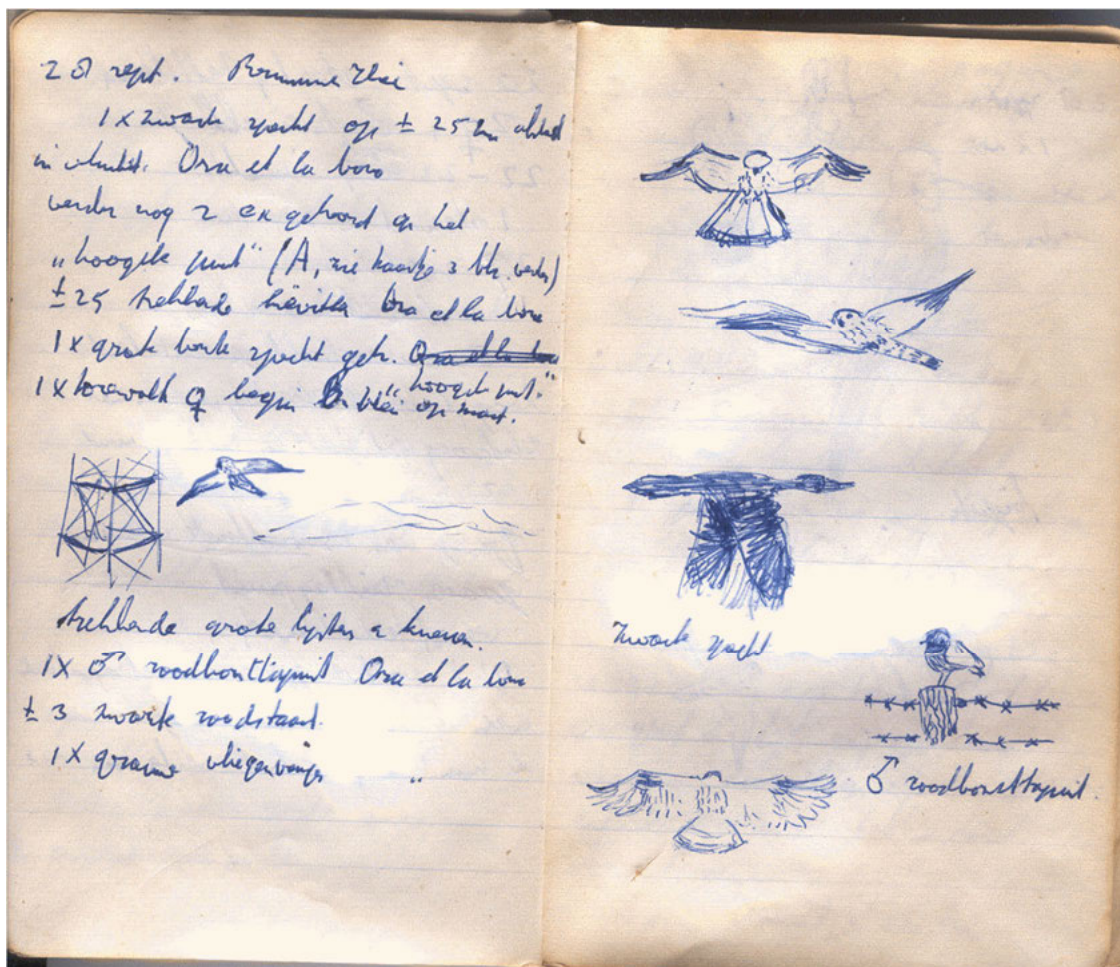 sept.
1 x zwarte specht op ± 25 m afstand
in vlucht. Ora et la bora
verder nog 2 ex gehoord op het
„hoogste punt" (A, zie kaartje 3 blz. verder)
± 25 trekkende kieviten Ora et la bora
1 x grote bonte specht geh. Ora et la bora
„hoogste punt."
1 x torenvalk ♀ begin hei op mast.
trekkende grote lijsters
1X ♂ roodborsttapuit Ora et la bora
± 3 zwarte roodstaart.
1 X grauwe vliegenvanger "
zwarte specht
♂ roodborsttapuit.